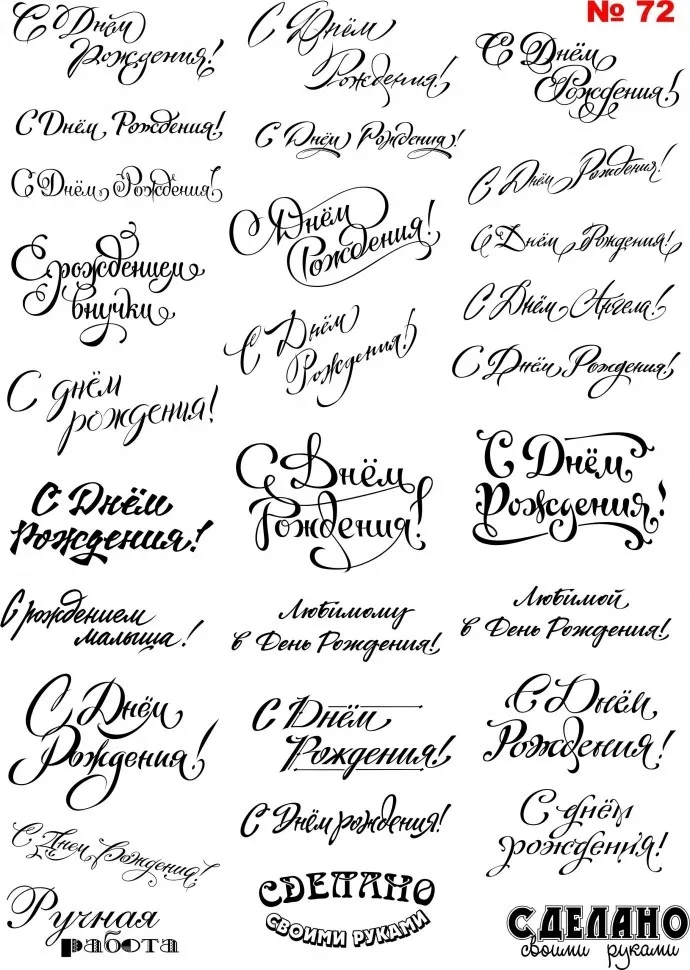 № 72
С Днём
Рождения!
С Днём
Рождения!
С Днём
Рождения!
С Днём Рождения!
С Днём Рождения!
С Днём Рождения!
С Днём Рождения!
С Днём
Рождения!
С Днём Рождения!
С рождением
внучки
С Днём Ангела!
С Днём
Рождения!
С Днём Рождения!
С днём
рождения!
С Днём
Рождения!
С Днём
Рождения!
С Днём
Рождения!
С рождением
малыша!
Любимому
в День Рождения!
Любимой
в День Рождения!
С Днём
Рождения!
С Днём
Рождения!
С Днём
Рождения!
С Днём Рождения!
С Днём рождения!
С днём
рождения!
Ручная
работа
СДЕЛАНО
СВОИМИ РУКАМИ
СДЕЛАНО
своими руками